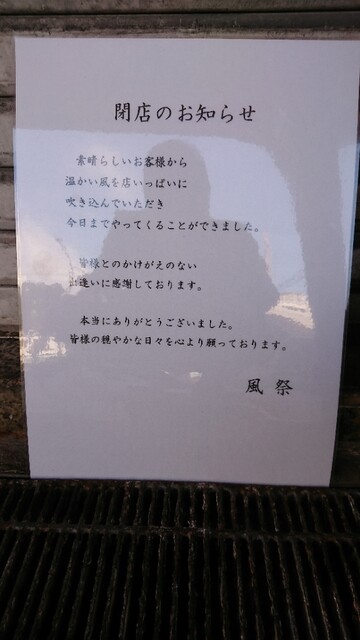 閉店のお知らせ
素晴らしいお客様から
温かい風を店いっぱいに
吹き込んでいただき
今日までやってくることができました。
皆様とのかけがえのない
出逢いに感謝しております。
本当にありがとうございました。
皆様の穏やかな日々を心より願っております。
風祭